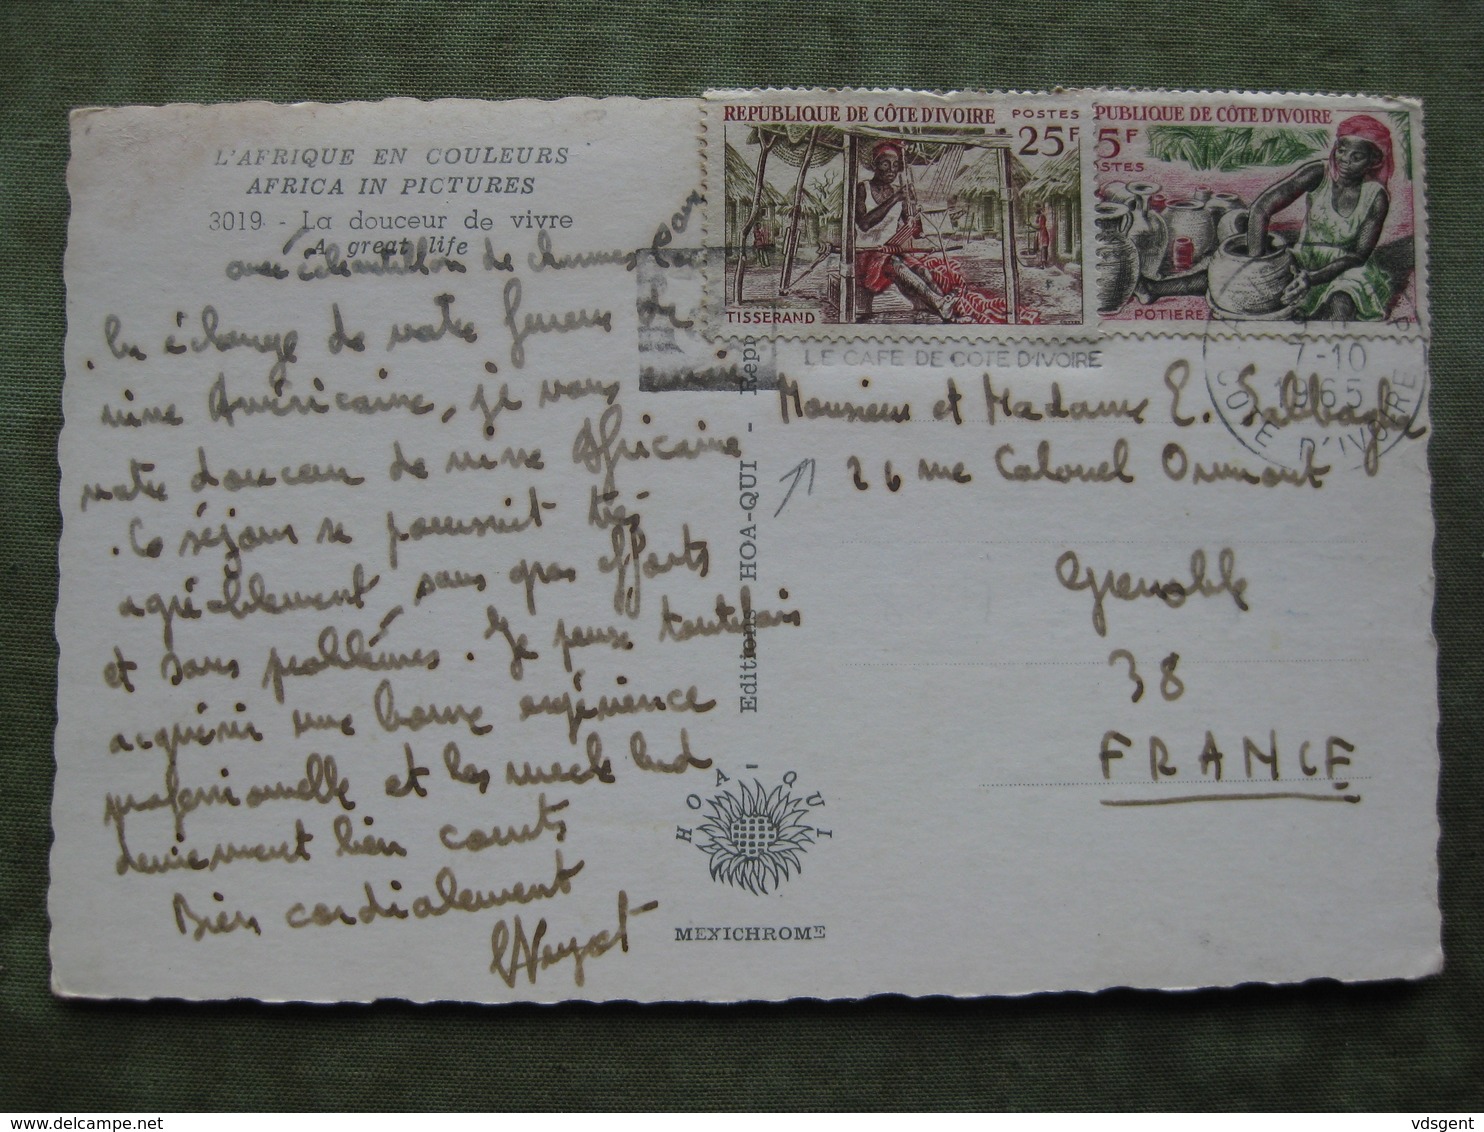 L'AFRIQUE EN COULEURS
AFRICA IN PICTURES
3019 - La douceur de vivre
A great life
avec échantillon de charmes
En échange de votre fureur de
vivre Américaine, je vous envoie
notre douceur de vivre Africaine
. Ce séjour se poursuit très
agréablement sans gros efforts
et sans problèmes. Je pense toutefois
acquérir une bonne expérience
professionnelle et les week end
deviennent bien courts
Bien cordialement
REPUBLIQUE DE CÔTE D'IVOIRE
POSTES
25F
TISSERAND
PUBLIQUE DE CÔTE D'IVOIRE
5F
STES
POTIERE
LE CAFE DE COTE D'IVOIRE
7-10
1965
COTE D'IVOIRE
Monsieur et Madame E.
26 rue Colonel
Grenoble
38
FRANCE
Editions HOA-QUI - Repr
HOA-QUI
MEXICHROME
delcampe.net
vdsgent